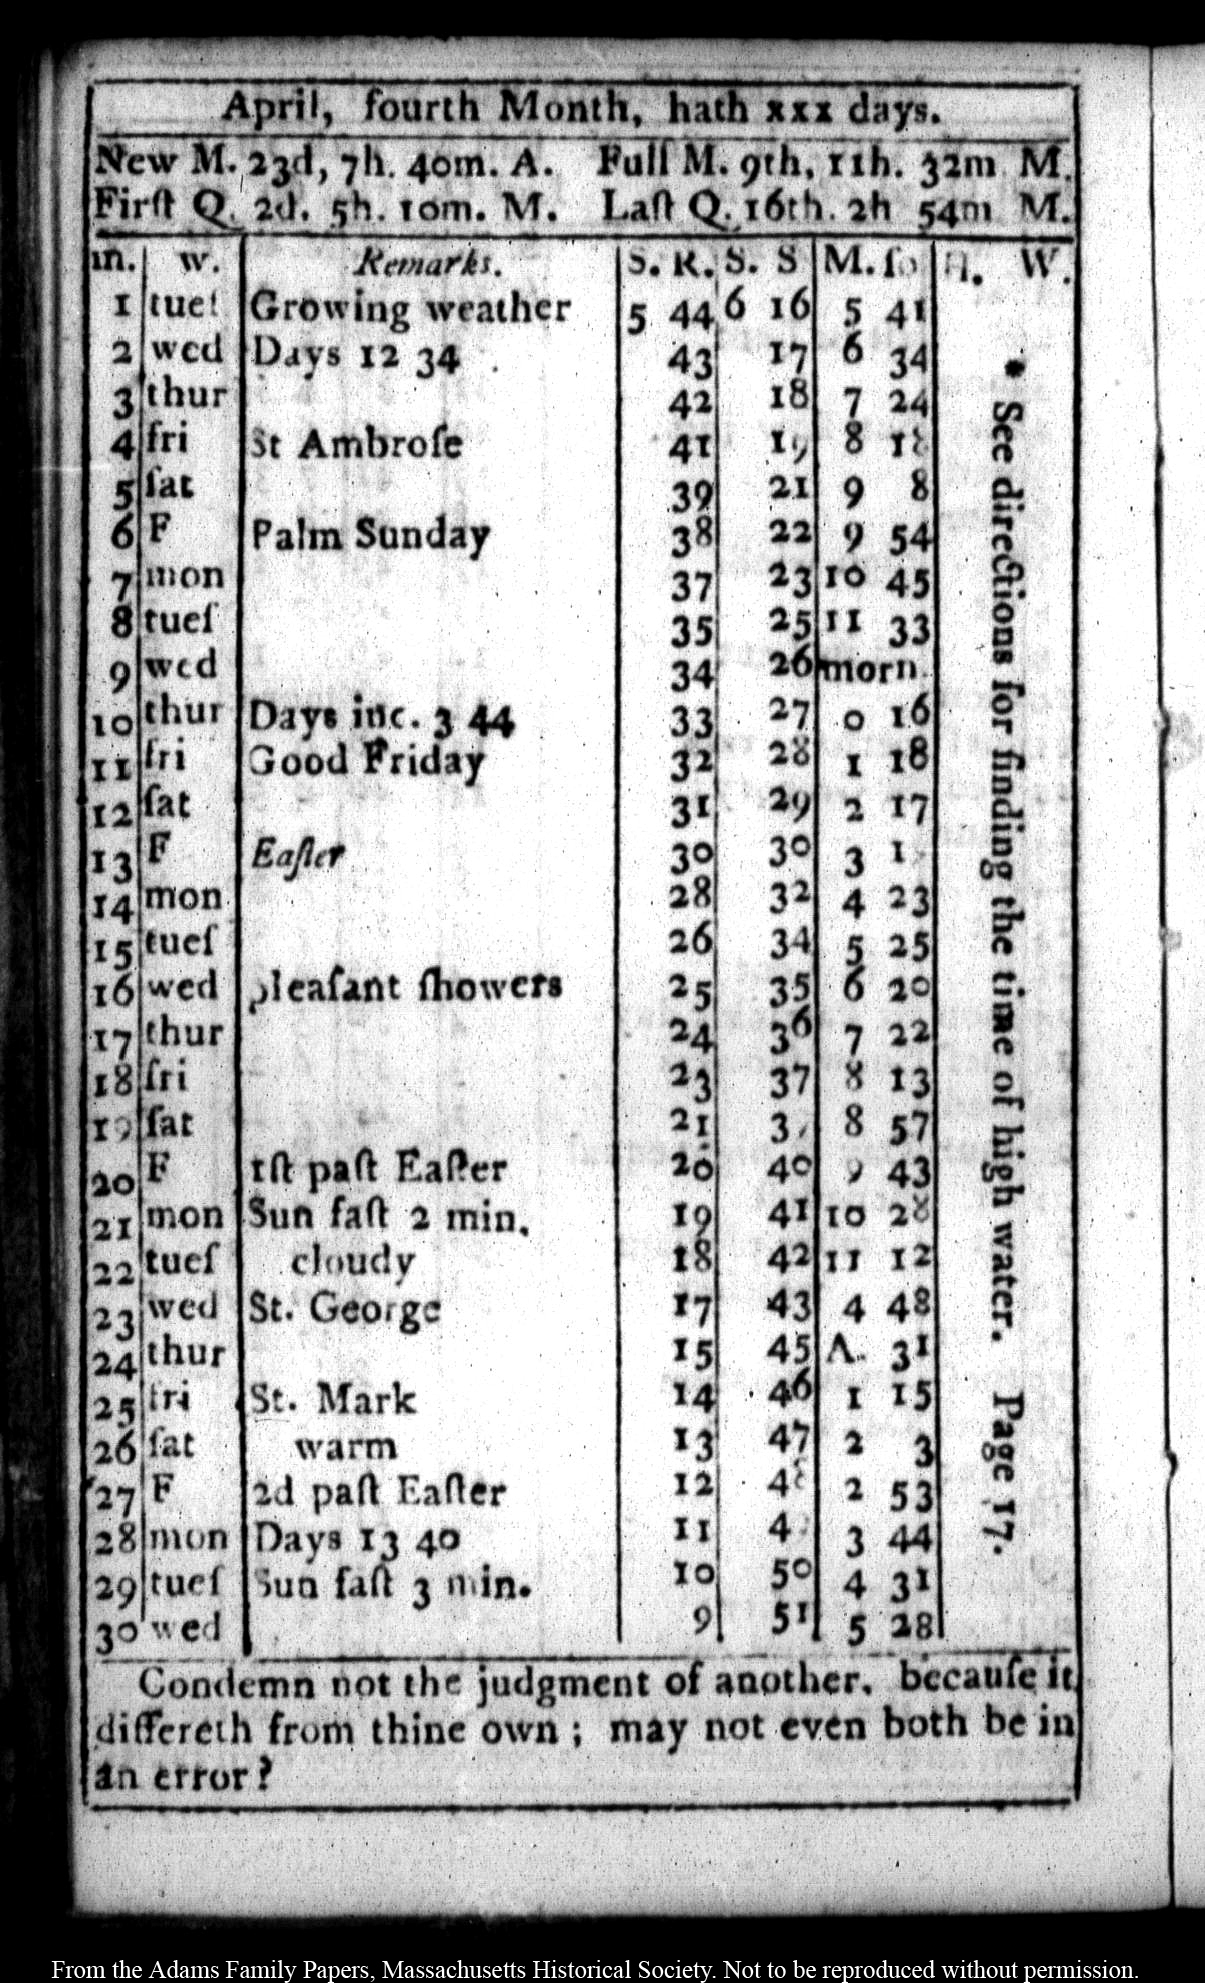 April, fourth Month, hath xxx days.
New M. 23d, 7h. 40m. A. Full M. 9th, 11h. 32m M.
Firſt Q. 2d. 5h. 10m. M. Laſt Q. 16th. 2h 54m M.
m. w. Remarks. S. R. S. S M. ſo H. W.
1 tueſ Growing weather 5 44 6 16 5 41
2 wed Days 12 34 43 17 6 34
3 thur 42 18 7 24
4 fri St Ambroſe 41 19 8 18
5 ſat 39 21 9 8
6 F Palm Sunday 38 22 9 54
7 mon 37 23 10 45
8 tueſ 35 25 11 33
9 wed 34 26 morn.
10 thur Days inc. 3 44 33 27 0 16
11 fri Good Friday 32 28 1 18
12 ſat 31 29 2 17
13 F Eaſter 30 30 3
14 mon 28 32 4 23
15 tueſ 26 34 5 25
16 wed pleaſant ſhowers 25 35 6 20
17 thur 24 36 7 22
18 fri 23 37 8 13
19 ſat 21 8 57
20 F 1ſt paſt Eaſter 20 40 9 43
21 mon Sun faſt 2 min. 19 41 10 28
22 tueſ cloudy 18 42 11 12
23 wed St. George 17 43 4 48
24 thur 15 45 A. 31
25 fri St. Mark 14 46 1 15
26 ſat warm 13 47 2 3
27 F 2d paſt Eaſter 12 48 2 53
28 mon Days 13 40 11 3 44
29 tueſ Sun faſt 3 min. 10 50 4 31
30 wed 9 51 5 28
* See directions for finding the time of high water. Page 17.
Condemn not the judgment of another, becauſe it
differeth from thine own ; may not even both be in
an error?
From the Adams Family Papers, Massachusetts Historical Society. Not to be reproduced without permission.